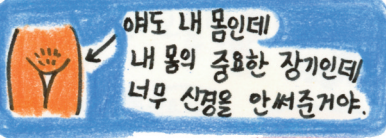 얘도 내 몸인데
내 몸의 중요한 장기인데
너무 신경을 안써준거야.